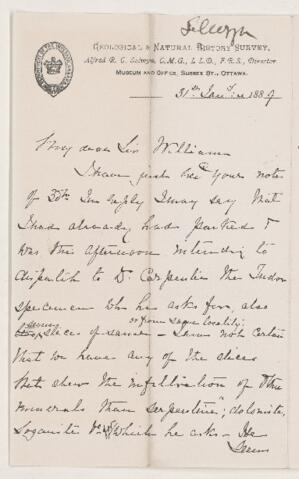 Selwyn
GEOLOGICAL & NATURAL HISTORY SURVEY,
Alfred R. C. Selwyn, C.M.G., L.L.D., F.R.S., Director
MUSEUM AND OFFICE, SUSSEX ST., OTTAWA.
31st Jany 1889
My dear Sir William
I have just recd your note
of 30th. In reply I may say that
I had already had packed &
was this afternoon intending to
dispatch to Dr Carpenter the Tudor
specimen which he asks for, also
or from same locality.
slices of same - I am not certain
that we have any of the slices
that shew the infiltration of other
minerals than serpentine, dolomite,
Loganite &c which he asks - He
seems